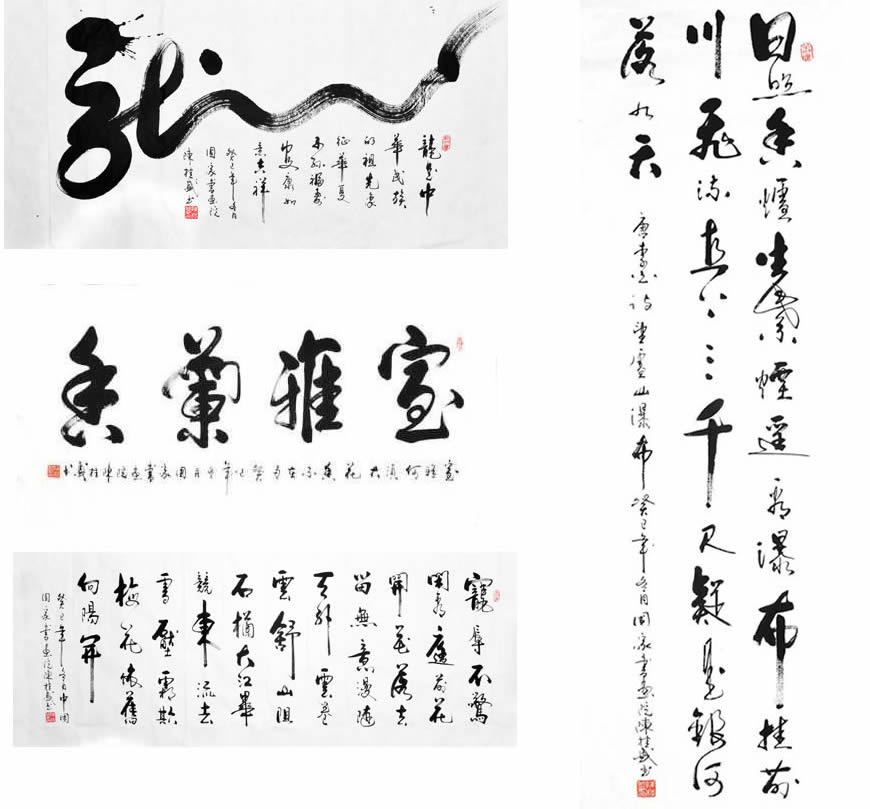 龍
龍是中
華民族
的祖先象
征華夏
子孫福壽
安康如
意吉祥
癸巳年冬月
国家書画院
陳桂书
室雅蘭香
室雅何須大花香不在多癸巳年冬月国家書画院陳桂书
寵辱不驚
閑看庭前花
開花落去
留無意漫随
天外雲卷
雲舒山阻
石擋大江畢
竟東流去
雪壓霜欺
梅花依舊
向陽開
癸巳年冬月中国
国家書画院陳桂书
日照香爐生紫煙遥看瀑布挂前
川飛流直下三千尺疑是銀河
落九天
唐李白诗望廬山瀑布癸巳年冬月国家書画院陳桂书